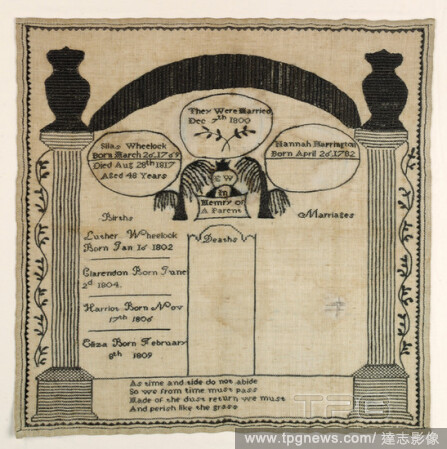 They Were Married
Dec 7th 1800
Silas Wheelock
Born March 26, 1769
Died Aug 28th 1817
Aged 48 Years
Hannah Harrington
Born April 26, 1782
E W
In
Memry of
A Parent
Births
Marriages
Luther Wheelock
Born Jan 16 1802
Deaths
Clarendon Born June
2d 1804.
Harriot Born Nov
17th 1806
Eliza Born February
8th 1809
As time and tide do not abide
So we from time must pass
Made of the dust return we must
And perish like the grass
TPG
www.tpgnews.com/ 達志影像